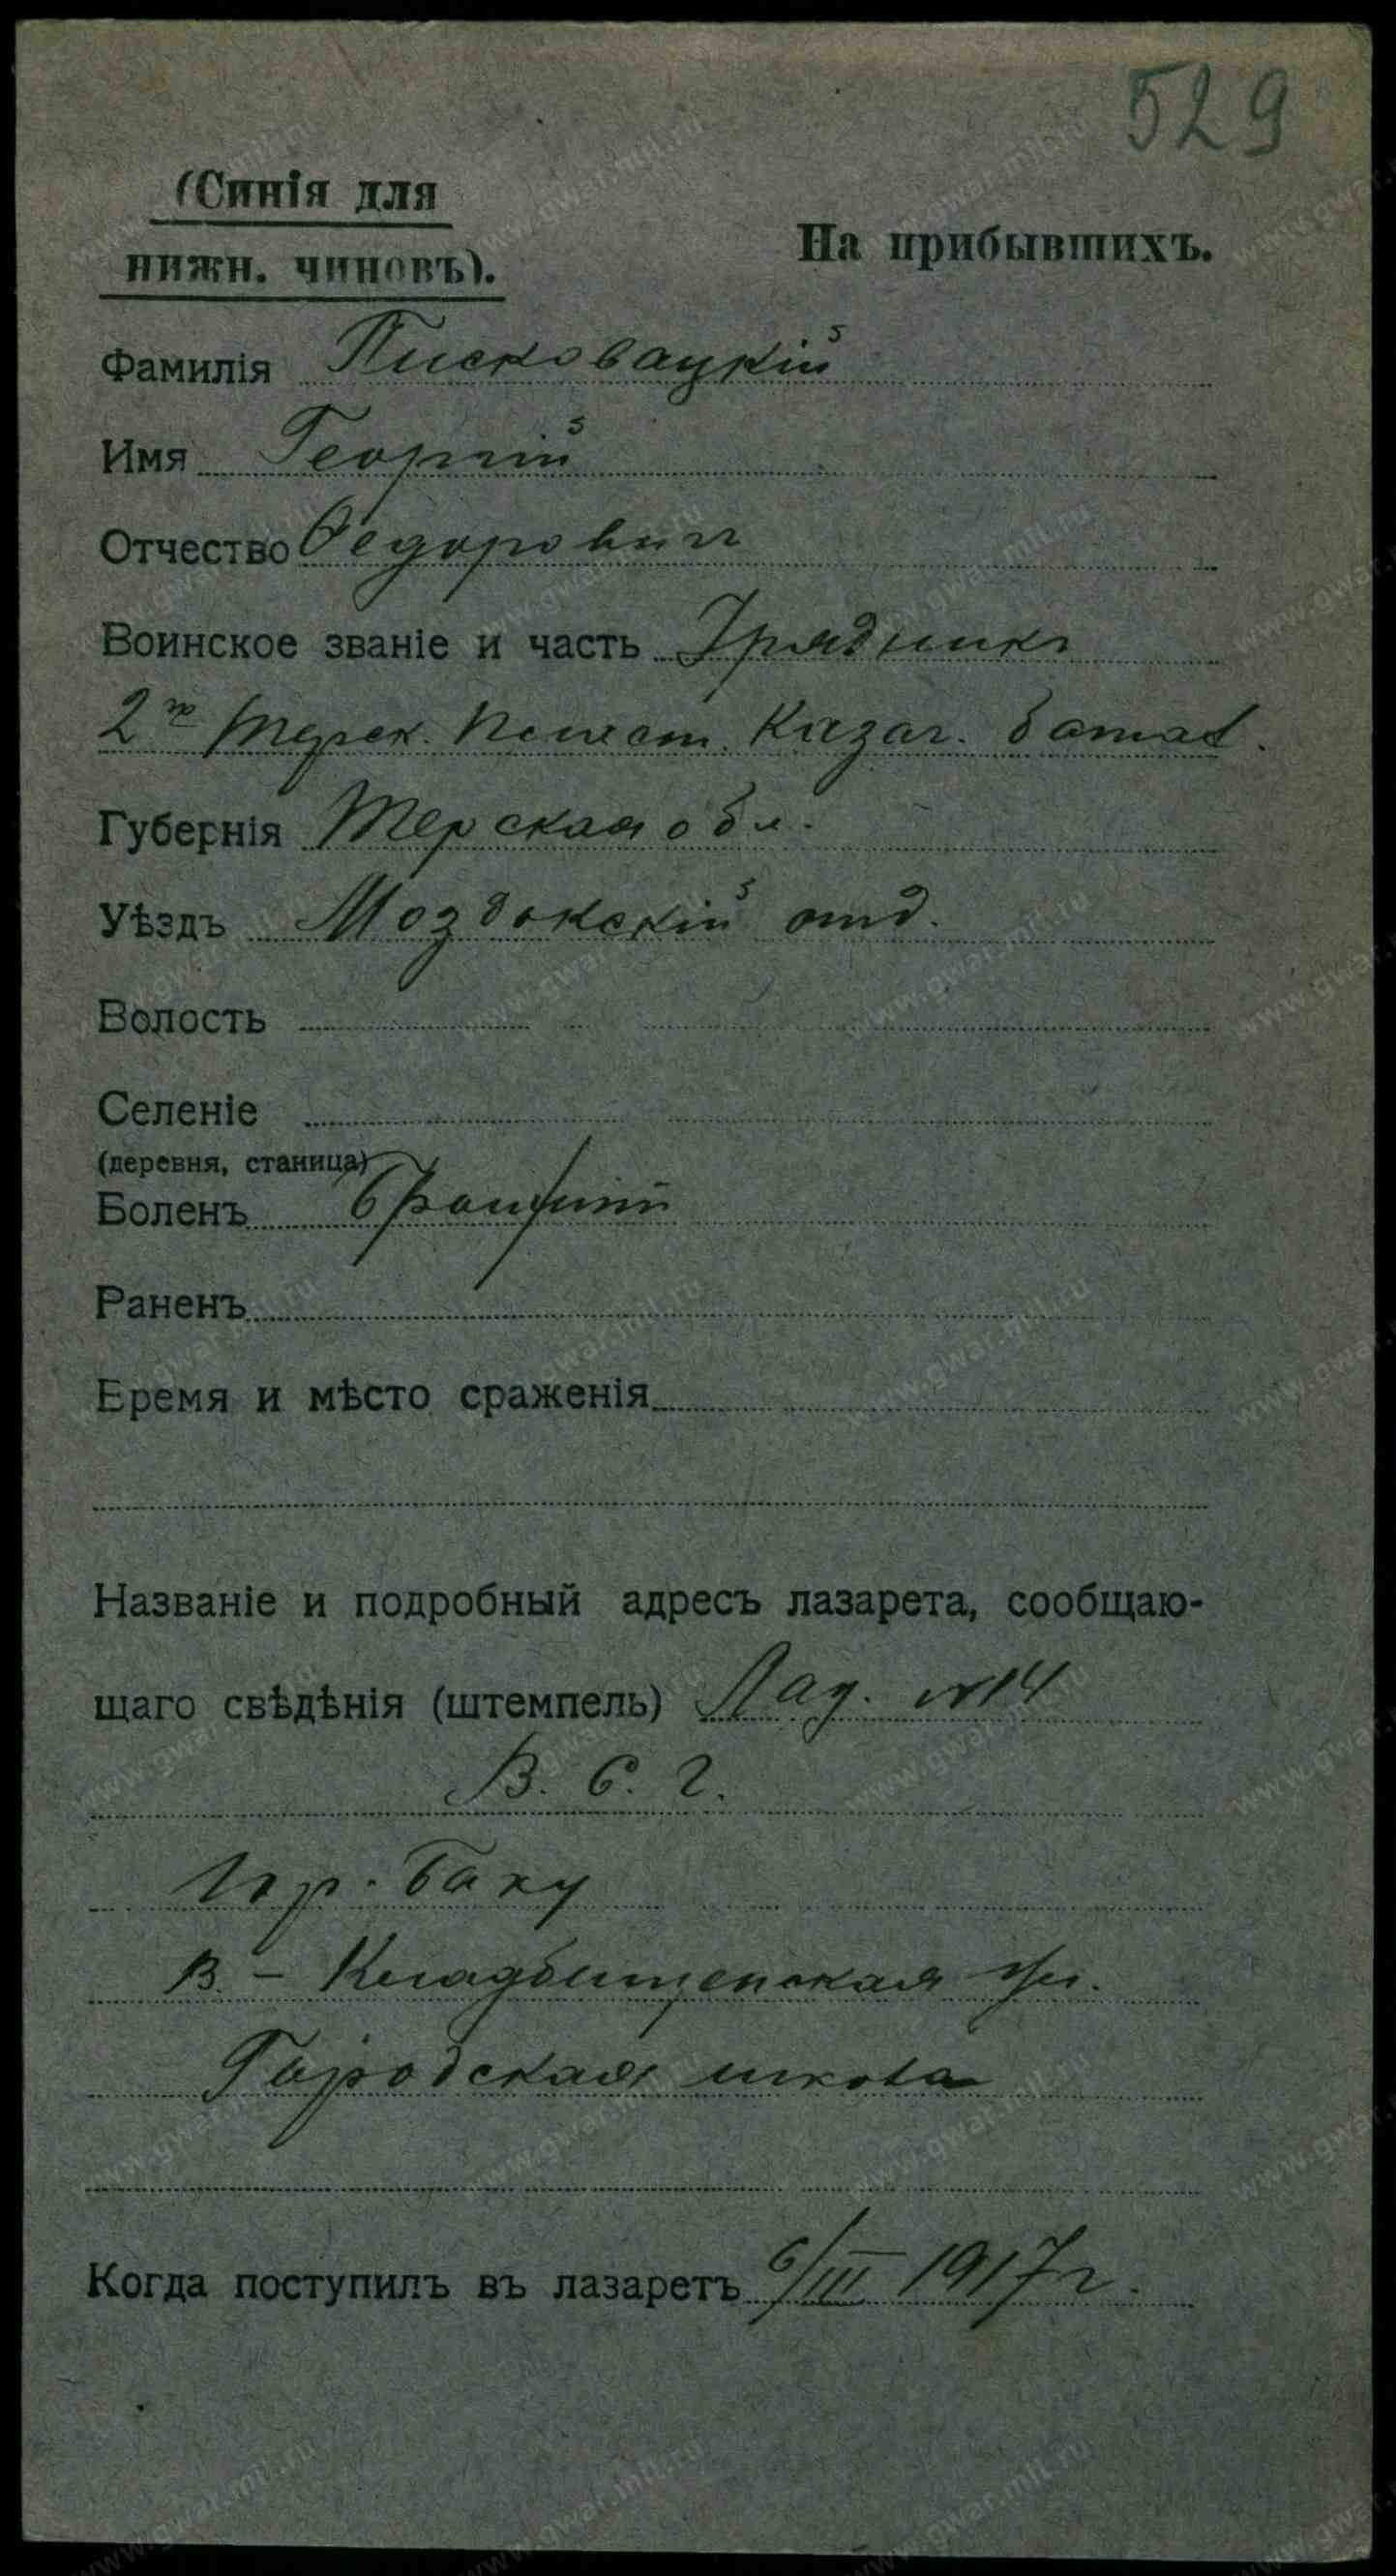 529
(Синія для
нижн. чиновъ).
На прибывшихъ.
Фамилія Писковацкій
Имя Георгій
Отчество Ѳедоровичъ
Воинское званіе и часть Урядникъ
2го Терск. Пласт. Казач. батал.
Губернія Терская обл.
Уѣздъ Моздокскій отд.
Волость
Селеніе
(деревня, станица)
Боленъ
Раненъ
Время и мѣсто сраженія
Названіе и подробный адресъ лазарета, сообщаю-
щаго свѣдѣнія (штемпель) Лаз. №14
В. С. Г.
Гор. Баку
В. - Кладбищенская ул.
Городская школа
Когда поступилъ въ лазаретъ 6/III 1917 г.